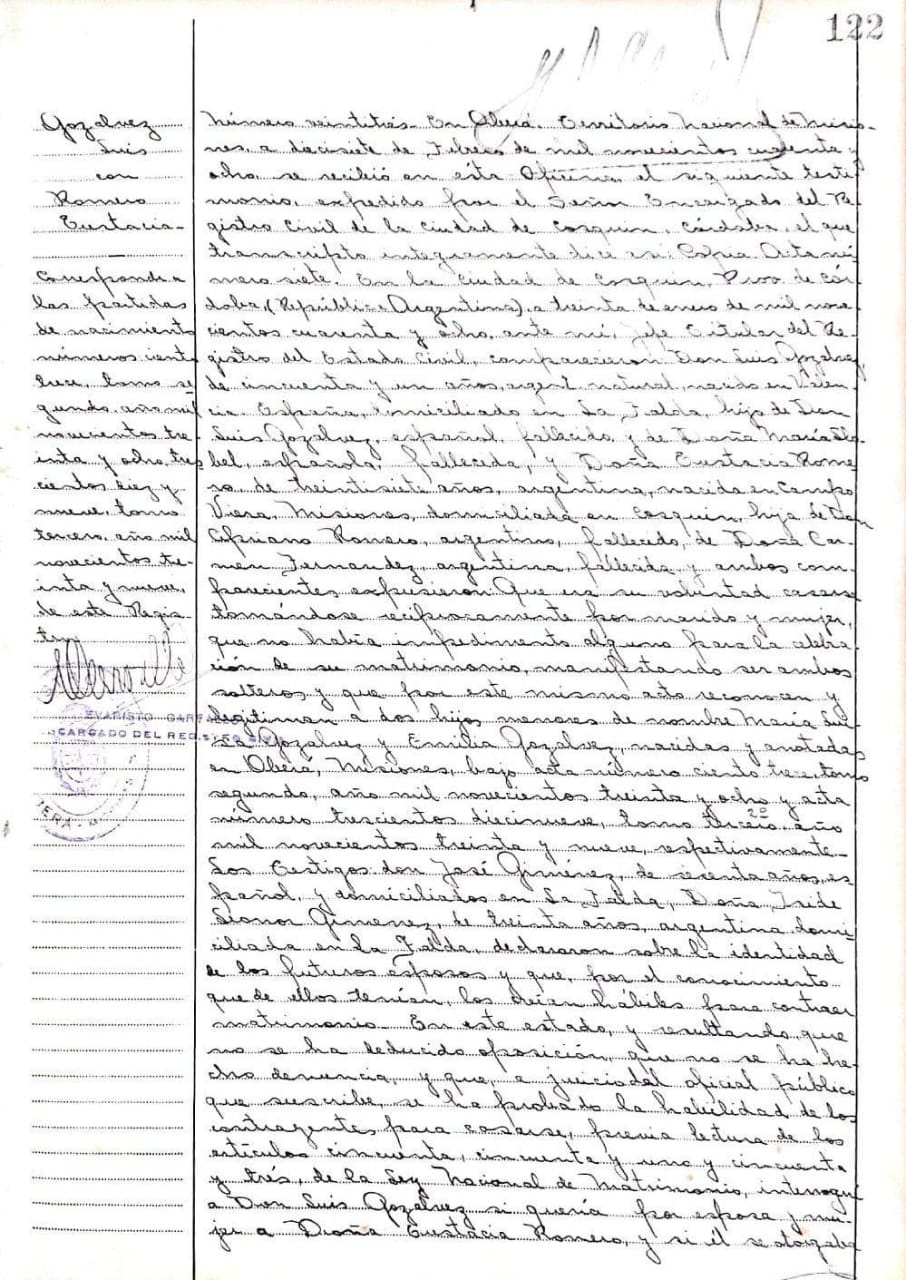 122
Gozalvez
Luis
con
Romero
Eustacia-
Corresponde a
las partidas
de nacimiento
números ciento
trece, tomo se-
gundo, año mil
novecientos tre-
inta y ocho, tres
cientos diez y
nueve, tomo
tercero, año mil
novecientos tre-
inta y nueve,
de este Regis-
tro.
EVARISTO
CARGADO DEL REGISTRO CIVIL
Número veintitrés. En Oberá, Territorio Nacional de Misio-
nes, a diecisiete de Febrero de mil novecientos cuarenta y
ocho, se recibió en esta Oficina, el siguiente testi-
monio, expedido por el Señor Encargado del Re-
gistro Civil de la ciudad de Cosquin, Córdoba, el que
transcripto integramente dice asi: Copia. Acta nú-
mero siete. En la ciudad de Cosquin, Prov. de Cór-
doba, (República Argentina), a treinta de enero de mil nove-
cientos cuarenta y ocho, ante mí, Jefe Titular del Re-
gistro del Estado Civil, comparecieron: Don Luis Gozalvez
de cincuenta y un años, argent. natural, nacido en Valen-
cia España, domiciliado en La Falda, hijo de Don
Luis Gozalvez, español, fallecido y de Doña María
española, fallecida, y Doña Eustacia Rome-
ro de treintisiete años, argentina, nacida en Campo
Viera, Misiones, domiciliada en Cosquin, hija de Don
Cipriano Romero, argentino, fallecido, de Doña Car-
men Fernandez, argentina, fallecida y ambos com-
parecientes expusieron: Que era su voluntad casarse
tomándose reciprocamente por marido y mujer,
que no había impedimento alguno para la celebra-
ción de su matrimonio, manifestando ser ambos
solteros y que por este mismo acto reconocen y
legitiman a dos hijos menores de nombre María Lui-
sa Gozalvez y Emilia Gozalvez, nacidas y anotadas
en Oberá, Misiones, bajo acta número ciento trece, tomo
segundo, año mil novecientos treinta y ocho y acta
número trescientos diecinueve, tomo tercero 2º año
mil novecientos treinta y nueve, respectivamente-
Los Testigos don José Giménez, de sesenta años, es-
pañol, y domiciliados en La Falda, Doña Iride
Leonor Gimenez, de treinta años, argentina domi-
ciliada en la Falda, declararon sobre la identidad
de los futuros esposos y que, por el conocimiento
que de ellos tenían, los creian hábiles para contraer
matrimonio- En este estado, y resultando, que
no se ha deducido oposición, que no se ha he-
cho denuncia, y que, a juicio del oficial público
que suscribe, se ha probado la habilidad de los
contrayentes para casarse, previa lectura de los
artículos cincuenta, cincuenta y uno y cincuenta
y trés, de la Ley Nacional de Matrimonio, interrogué
a Don Luis Gozalvez si quería por esposa y mu-
jer a Doña Eustacia Romero, y si él se otorgaba